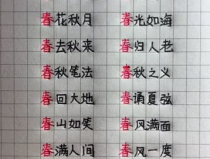 春花秋月 春光如海
春去秋来 春归人老
春秋笔法 春秋之义
春回大地 春诵夏弦
春山如笑 春风满面
春满人间 春风一度